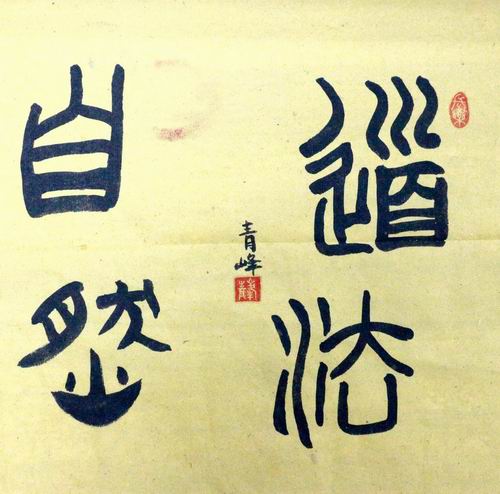 道法
自然
青峰